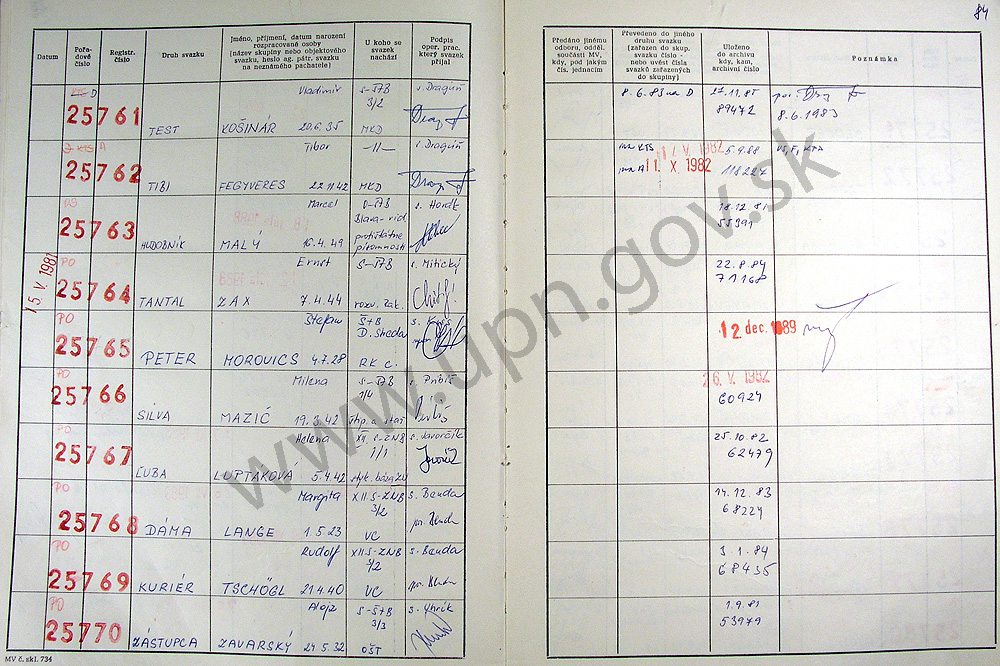 84
Datum
Pořadové číslo
Registr. číslo
Druh svazku
Jméno, příjmení, datum narození
rozpracované osoby
(název skupiny nebo objektového
svazku, heslo ag. pátr. svazku
na neznámého pachatele)
U koho se
svazek
nachází
Podpis
oper. prac.
který svazek
přijal
Předáno jinému
odboru, odděl.
součásti MV,
kdy, pod jakým
čís. jednacím
Převedeno do jiného
druhu svazku
(zařazen do skup.
svazku číslo -
nebo uvést čísla
svazků zařazených
do skupiny)
Uloženo
do archivu
kdy, kam,
archivní číslo
Poznámka
D Vladimír S-ŠTB s. Draguň 8.6.83 na D 27.11.85
25761 TEST KOŠINÁR 20.6.35 3/2 MKD 89472 8.6.1983
KTS A Tibor -11- s. Draguň na KTS 17 V. 1982 5.9.88
25762 TIBI FEGYVERES 22.11.42 MKD na A 11. X 1982
Marcel s. Hordt 18.12.81
25763 HUDOBNÍK MALÝ 16.4.49 55391
15 V. 1981
PO Ernst S-ŠTB s. Mitický 22.8.84
25764 TANTAL ZAX 7.4.44 rozv. zak. 71168
PO Štefan ŠTB D. Streda
25765 PETER MOROVICS 4.7.28 RK c. 12 dec. 1989
PO Milena S-ŠTB 1/4 s. Pribiš 26. V. 1982
25766 SILVA MAZIĆ 19.2.42 60924
PO Helena XII. S-ZNB 1/1 s. Javorčík 25.10.82
25767 ĽUBA LUPTÁKOVÁ 5.4.42 62479
PO Margita XII S-ZNB 3/2 s. Benda 14.12.83
25768 DÁMA LANGE 1.5.23 VC 68224
PO Rudolf XII S-ZNB s. Benda 3.1.84
25769 KURIÉR TSCHÖGL 21.4.40 VC 68435
PO Alojz S-ŠTB 3/3 1.9.81
25770 ZÁSTUPCA ZAVARSKÝ 24.5.32 OŠT 53979
MV č. skl. 734
www.upn.gov.sk